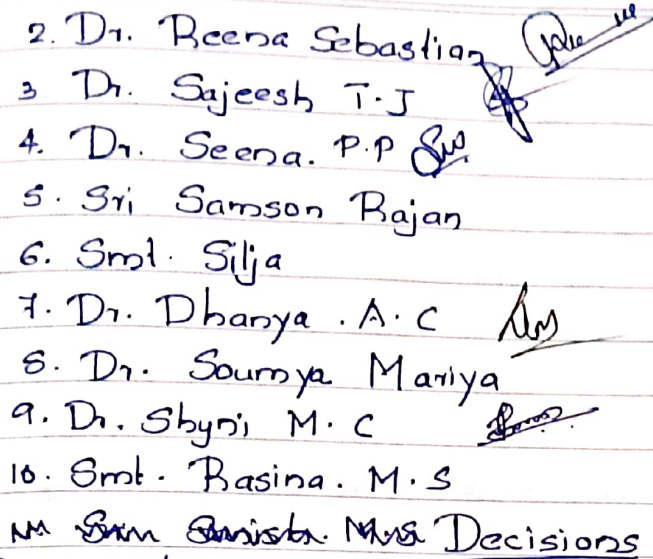 2. Dr. Reena Sebastian
3 Dr. Sajeesh T.J
4. Dr. Seena. P.P
5. Sri Samson Rajan
6. Smt. Silja
7. Dr. Dhanya . A. C
8. Dr. Soumya Mariya
9. Dr. Shyni M. C
10. Smt. Rasina. M.S
Decisions